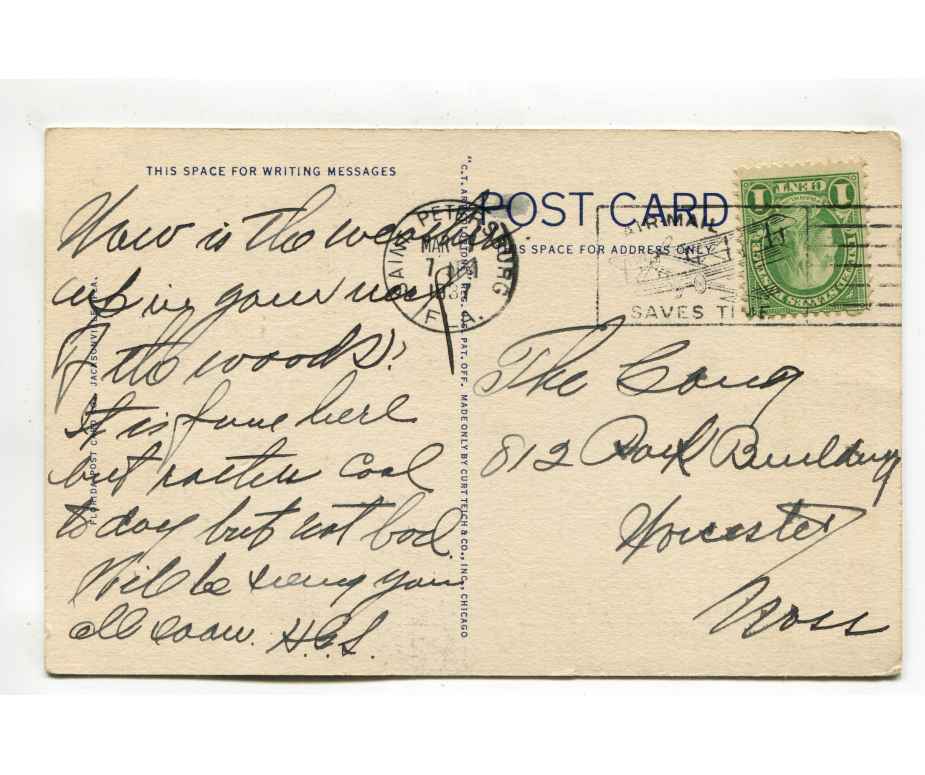 THIS SPACE FOR WRITING MESSAGES
How is the weather
up in your neck
of the woods?
It is fine here
but rather cool
today but not bad.
Will be seeing you
all soon. H.E.S.
FLORIDA POST CARD JACKSONVILLE, FLA.
"C.T. REG. U.S. PAT. OFF. MADE ONLY BY CURT TEICH & CO., INC., CHICAGO
POST CARD
THIS SPACE FOR ADDRESS ONLY
SAINT PETERSBURG
MAR
7
FLA.
AIR MAIL
SAVES TIME
1 CENT 1
UNITED STATES POSTAGE
The Gang
812 Park Building
Worcester
Mass